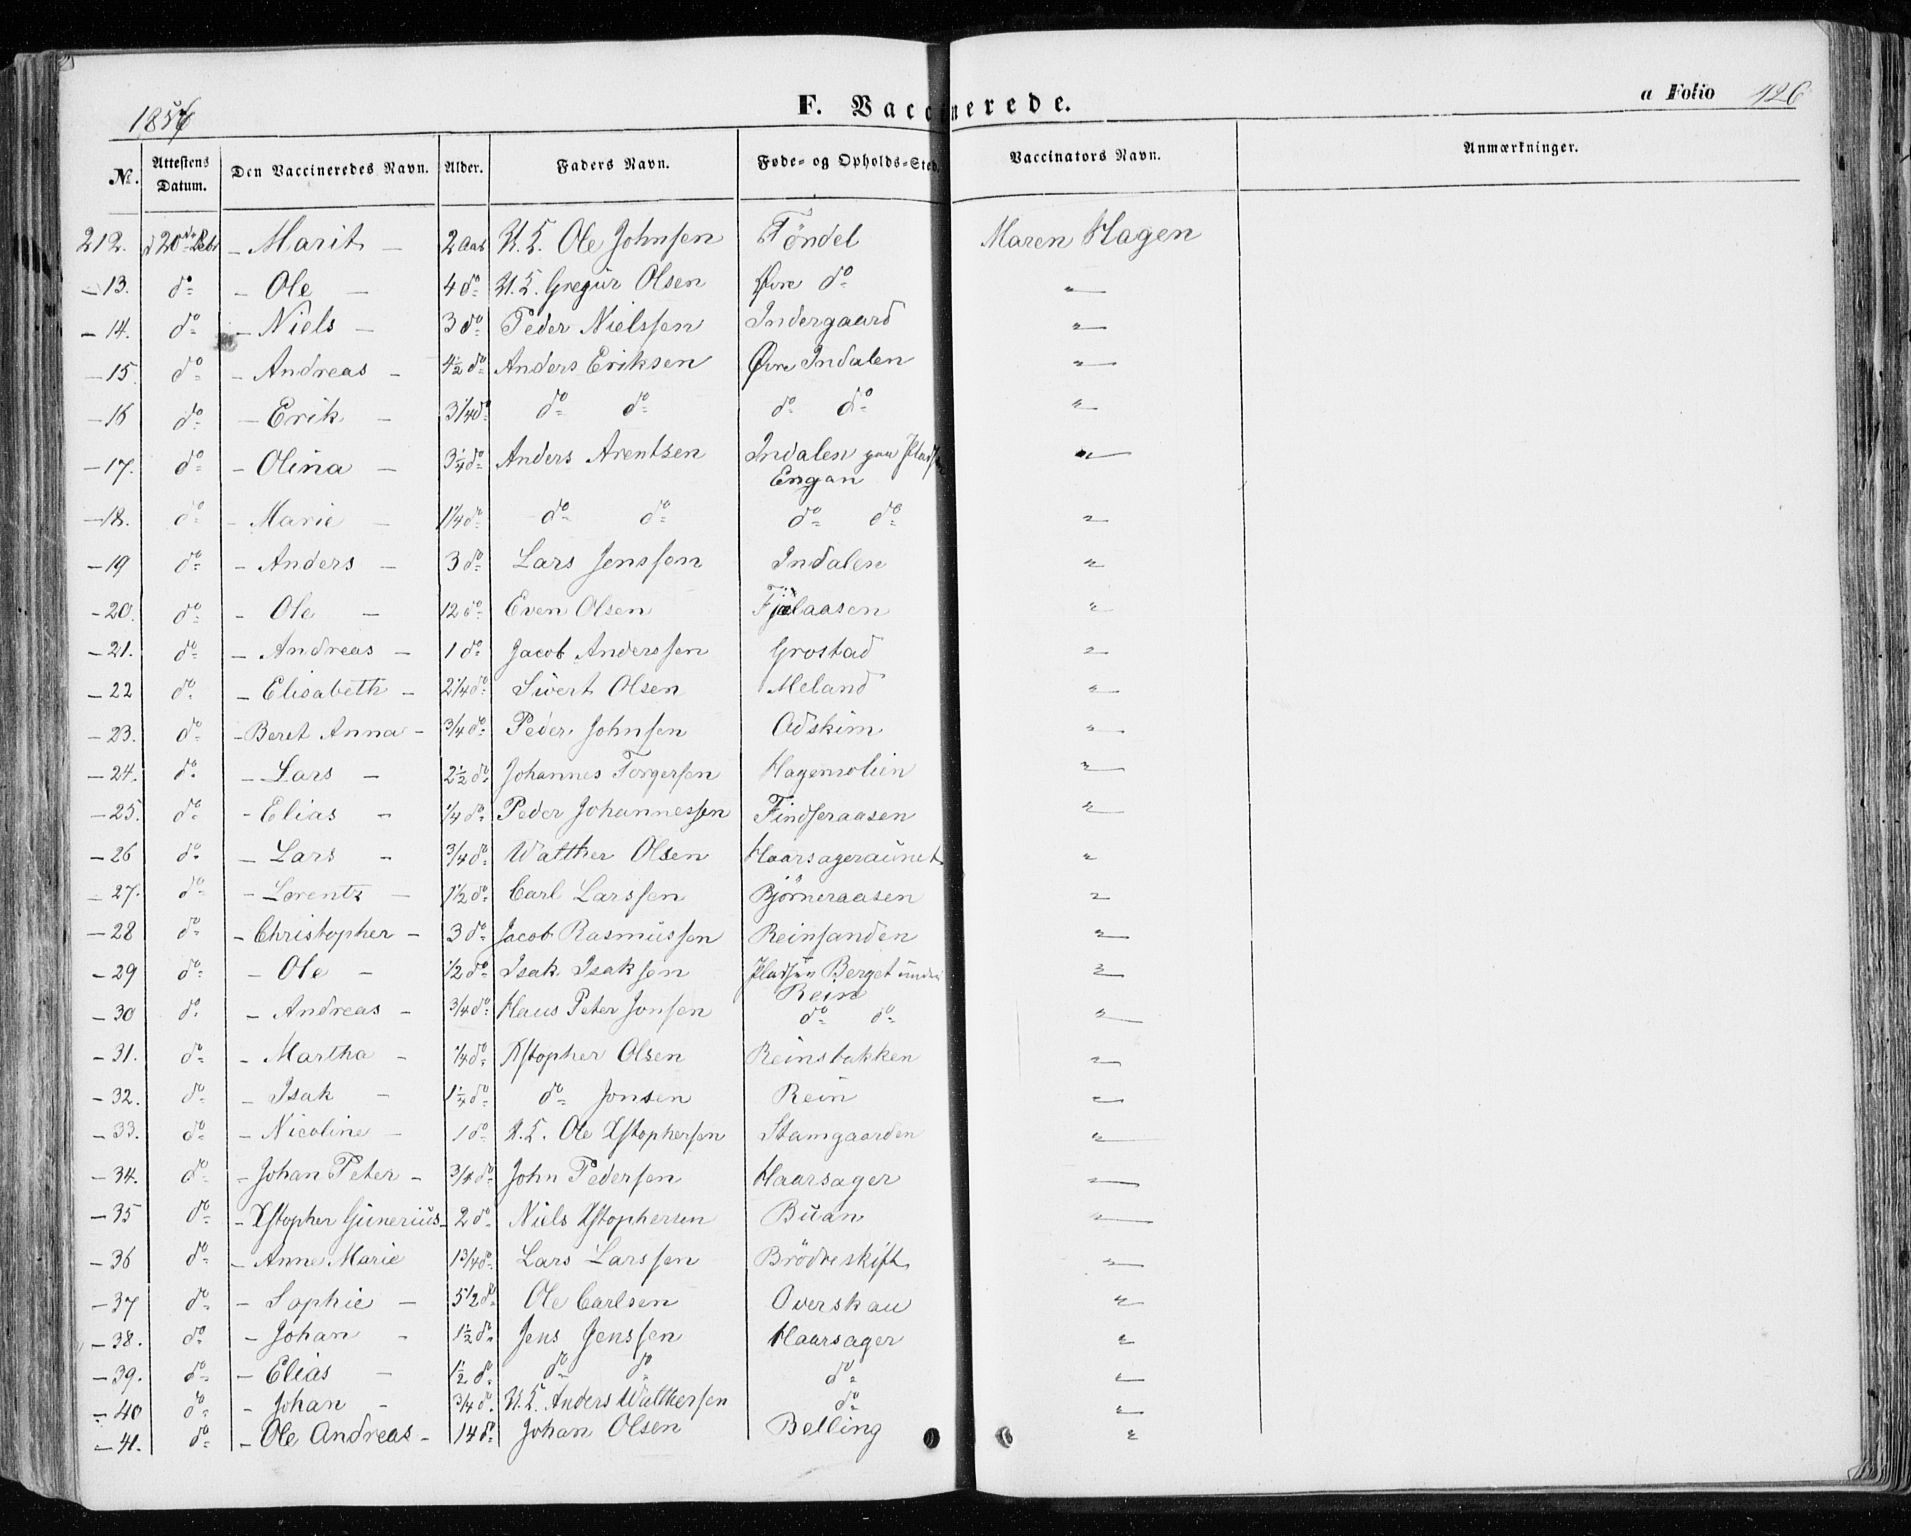 1856
F. Vaccinerede.
a Folio 426
No. Attestens Datum. Den Vaccineredes Navn. Alder. Faders Navn. Føde- og Opholds-Sted. Vaccinators Navn. Anmærkninger.
212. d 20de Febr - Marit - 2 Aar U. E. Ole Johnsen Föndel Maren Hagen
- 13. do - Ole - 4 do U. E. Gregur Olsen Øvre do "
- 14. do - Niels - 3 do Peder Nielssen Indergaard "
- 15. do - Andreas - 4½ do Anders Eriksen Øvre Indalen "
- 16 do - Erik - 3¼ do do do do do "
- 17. do - Olina - 3¼ do Anders Arentsen Indalen paa Pladsen Engan "
- 18. do - Marie - 1¼ do do do do do "
- 19 do - Anders - 3 do Lars Jenssen Indalen "
- 20. do - Ole - 12 do Even Olsen Fjelaasen "
- 21. do - Andreas - 1 do Jacob Anderssen Grostad "
- 22 do - Elisabeth - 2¼ do Sivert Olsen Meland "
- 23. do - Beret Anna - ¾ do Peder Johnsen Adskim "
- 24. do - Lars - 2½ do Johannes Torgersen Hagensolien "
- 25. do - Elias - ¼ do Peder Johannessen Findseraasen "
- 26 do - Lars - ¾ do Walther Olsen Haarsageraunet "
- 27. do - Lorentz - 1½ do Carl Larssen Bjørneraasen "
- 28 do - Christopher - 3 do Jacob Rasmussen Reinsanden "
- 29 do - Ole - ½ do Isak Isaksen Pladsen Berget under Rein "
- 30 do - Andreas - ¾ do Hans Peter Jonsen do do "
- 31. do - Martha - ¼ do Xstopher Olsen Reinsbakken "
- 32. do - Isak - 1¼ do do Jonsen Rein "
- 33. do - Nicoline - 1 do U. E. Ole Xstophersen Stamgaarden "
- 34. do - Johan Peter - ¾ do John Pedersen Haarsager "
- 35 do - Xstopher Gunerius - 2 do Niels Xstophersen Buan "
- 36 do - Anne Marie 1¾ do Lars Larssen Brödreskift "
- 37 do - Sophie - 5½ do Ole Carlsen Overskau "
- 38. do - Johan - 1½ do Jens Jenssen Haarsager "
- 39. do - Elias - 1½ do do do do "
- 40 do - Johan - ¾ do U. E. Anders Walthersen do "
- 41. do - Ole Andreas - 14 do Johan Olsen Belling "